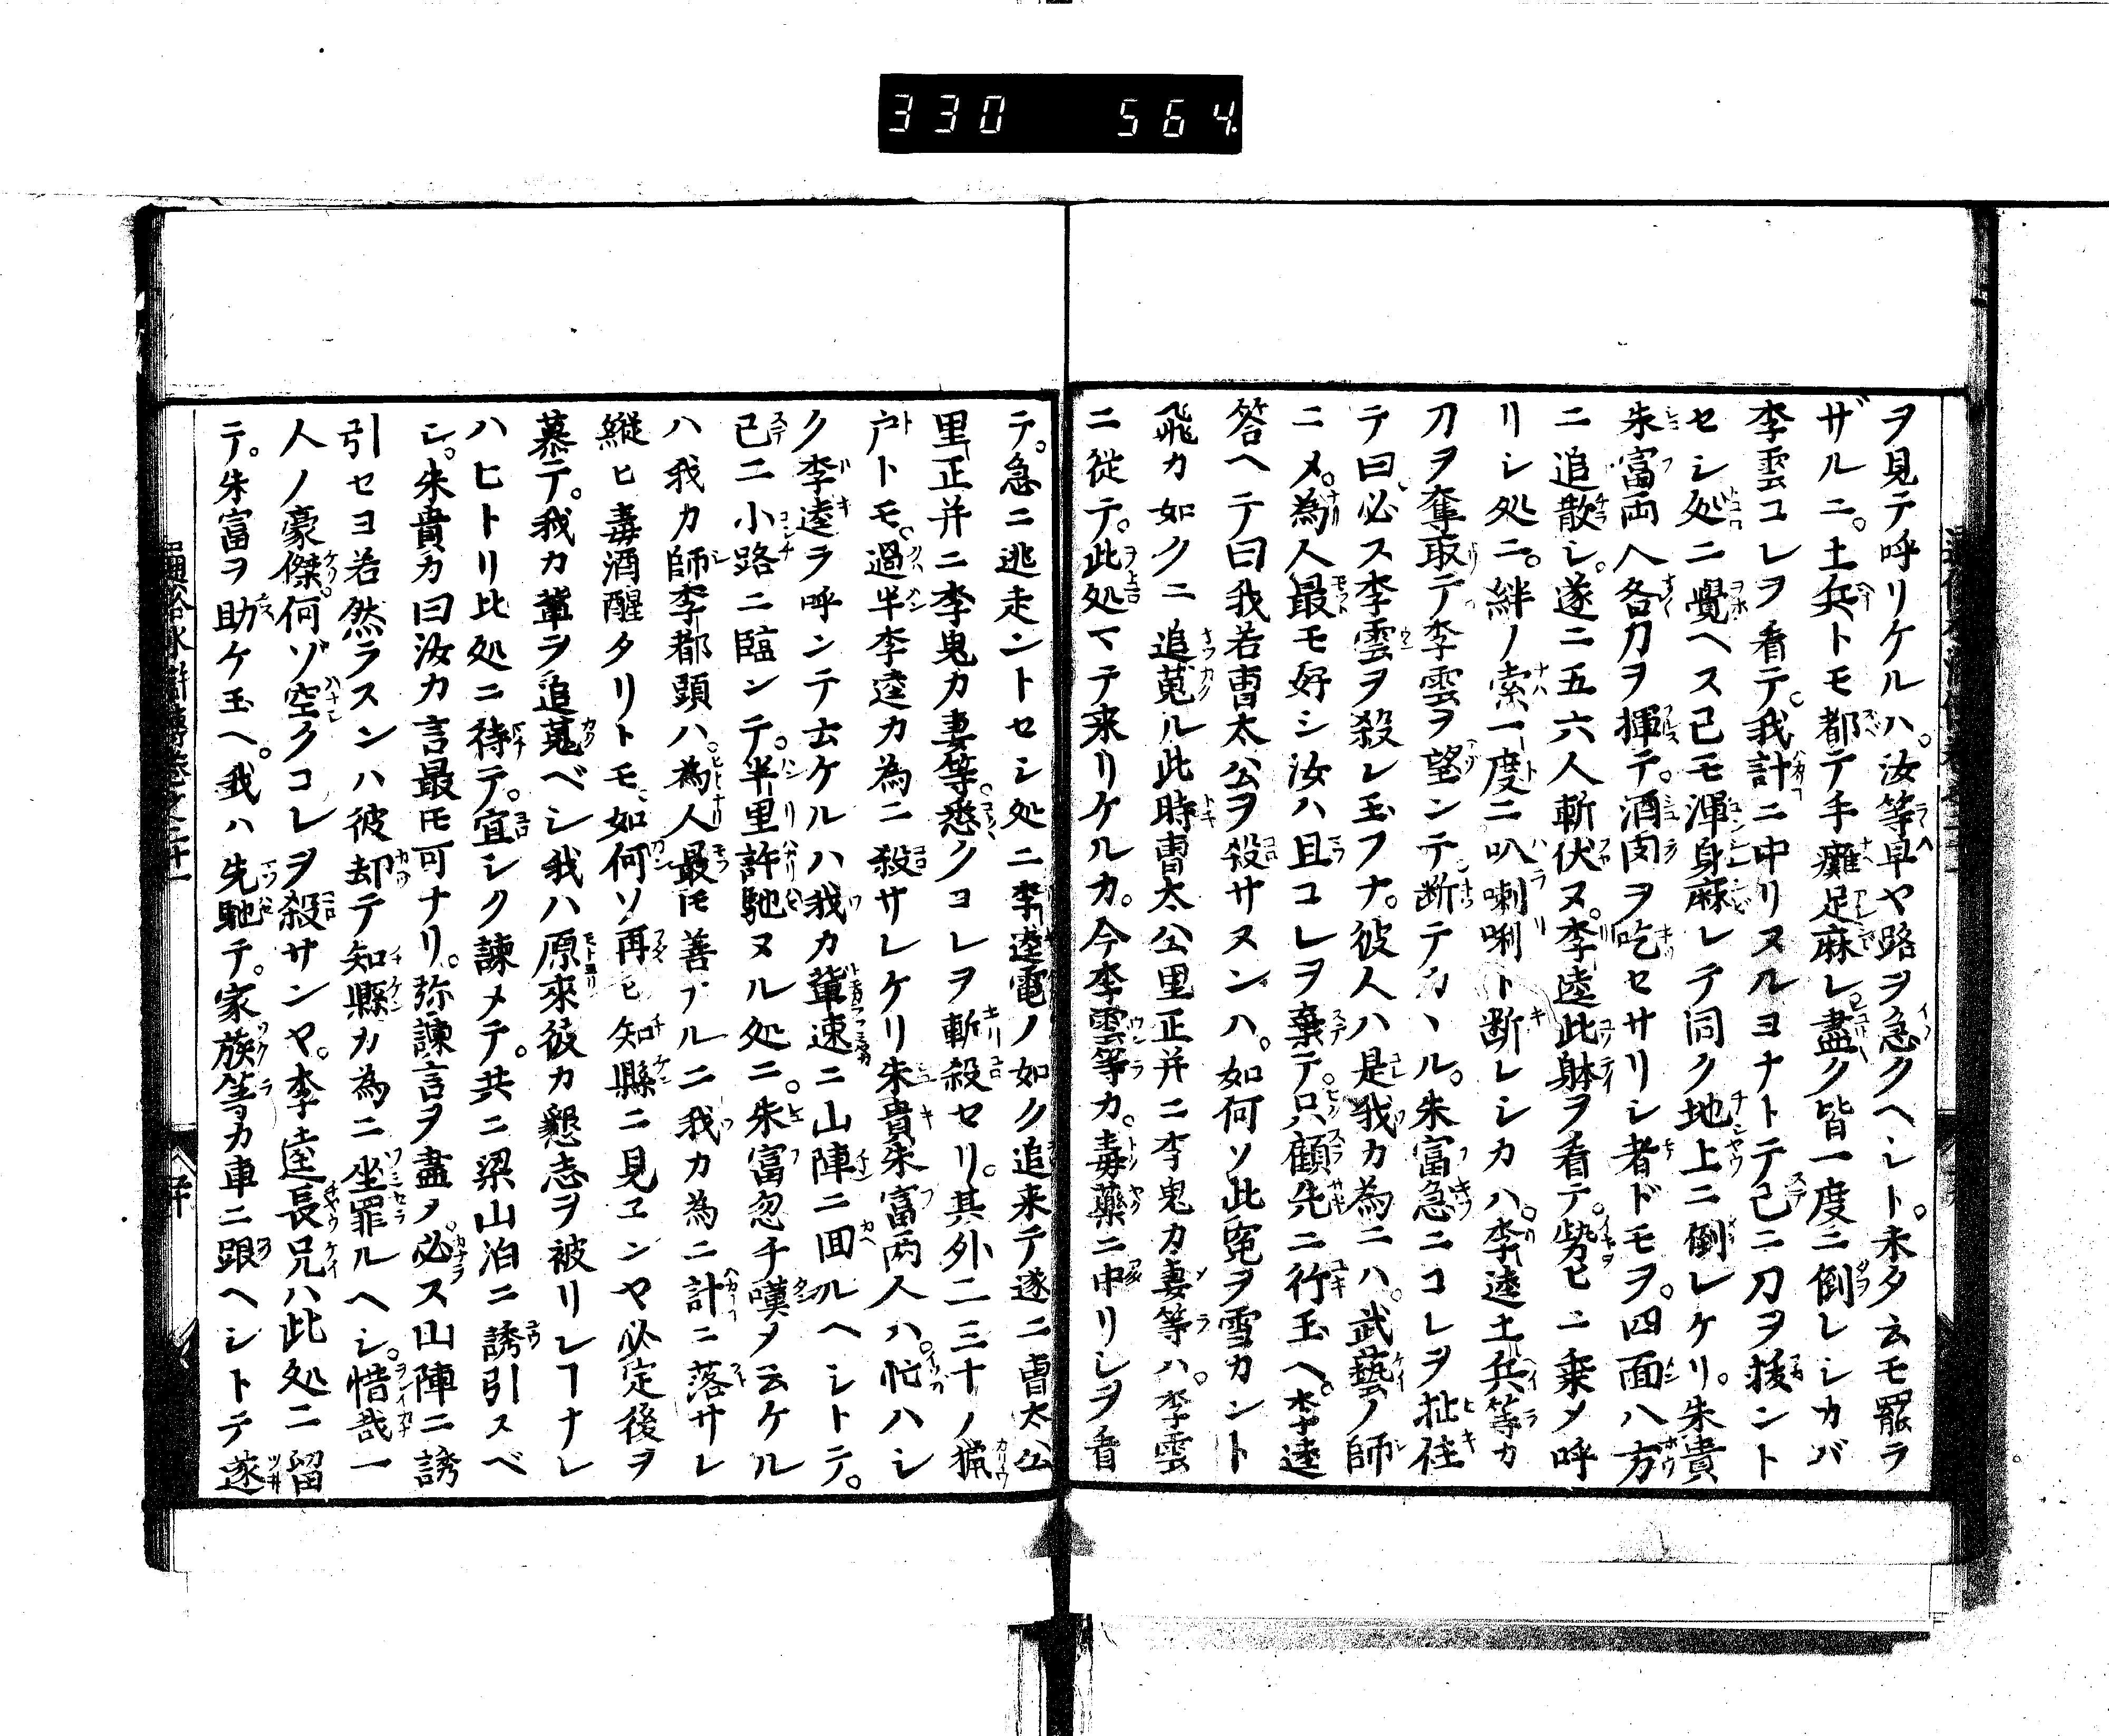 330 564.
ヲ見テ呼リケルハ。汝等早ヤ路ヲ急クヘシト。未タ云モ罷ラ
ザルニ。土兵トモ都テ手癱足麻レ盡ク皆一度ニ倒レシカバ
李雲コレヲ看テ。我計ニ中リヌルヨナトテ已ニ刀ヲ拔ント
セシ処ニ覺ヘス己モ渾身麻レテ同ク地上ニ倒レケリ。朱貴
朱富両人各刀ヲ揮テ。酒肉ヲ吃セサリシ者ドモヲ。四面八方
ニ追散シ。遂ニ五六人斬伏ヌ。李逵此躰ヲ看テ。勢ヒニ乗メ呼
リシ処ニ。絆ノ索一度ニ叭喇唎ト断レシカハ。李逵土兵等カ
刀ヲ奪取テ李雲ヲ望ンテ断テカヽル。朱富急ニコレヲ扯住
テ曰必ス李雲ヲ殺レ玉フナ。彼人ハ是我カ為ニハ。武藝ノ師
ニメ。為人最モ好シ汝ハ且コレヲ棄テ。只顧先ニ行玉ヘ。李逵
答ヘテ曰我若曹太公ヲ殺サヌンハ。如何ソ此寃ヲ雪カント
飛カ如クニ追蒐ル此時曹太公里正并ニ李鬼カ妻等ハ。李雲
ニ従テ。此処マテ来リケルカ。今李雲等カ。毒藥ニ中リシヲ看
テ。急ニ逃走ントセシ処ニ李逵電ノ如ク追来テ遂ニ曹太公
里正并ニ李鬼カ妻等。悉クコレヲ斬殺セリ。其外二三十ノ猟
戸トモ。過半李逵カ為ニ殺サレケリ朱貴朱富両人ハ。忙ハシ
ク李逵ヲ呼ンテ士ケルハ我カ輩速ニ山陣ニ回ルヘシトテ。
已ニ小路ニ臨ンテ。半里許馳ヌル処ニ。朱富忽チ嘆メ云ケル
ハ我カ師李都頭ハ。為人最モ善ブルニ我カ為ニ計ニ落サレ
縦ヒ毒酒醒タリトモ。如何ソ再ヒ知縣ニ見ヱンヤ必定後ヲ
慕テ。我カ輩ヲ追蒐ベシ我ハ原來彼カ懇志ヲ被リレヿナレ
ハヒトリ此処ニ待テ。宜シク諫メテ。共ニ梁山泊ニ誘引スベ
シ。朱貴カ曰汝カ言最モ可ナリ。弥諫言ヲ盡メ。必ス山陣ニ誘
引セヨ若然ラスンハ彼却テ知縣カ為ニ坐罪ルヘシ。惜哉一
人ノ豪傑。何ゾ空クコレヲ殺サンヤ。李逵長兄ハ此処ニ留
テ。朱富ヲ助ケ玉ヘ。我ハ先馳テ。家族等カ車ニ跟ヘシトテ遂